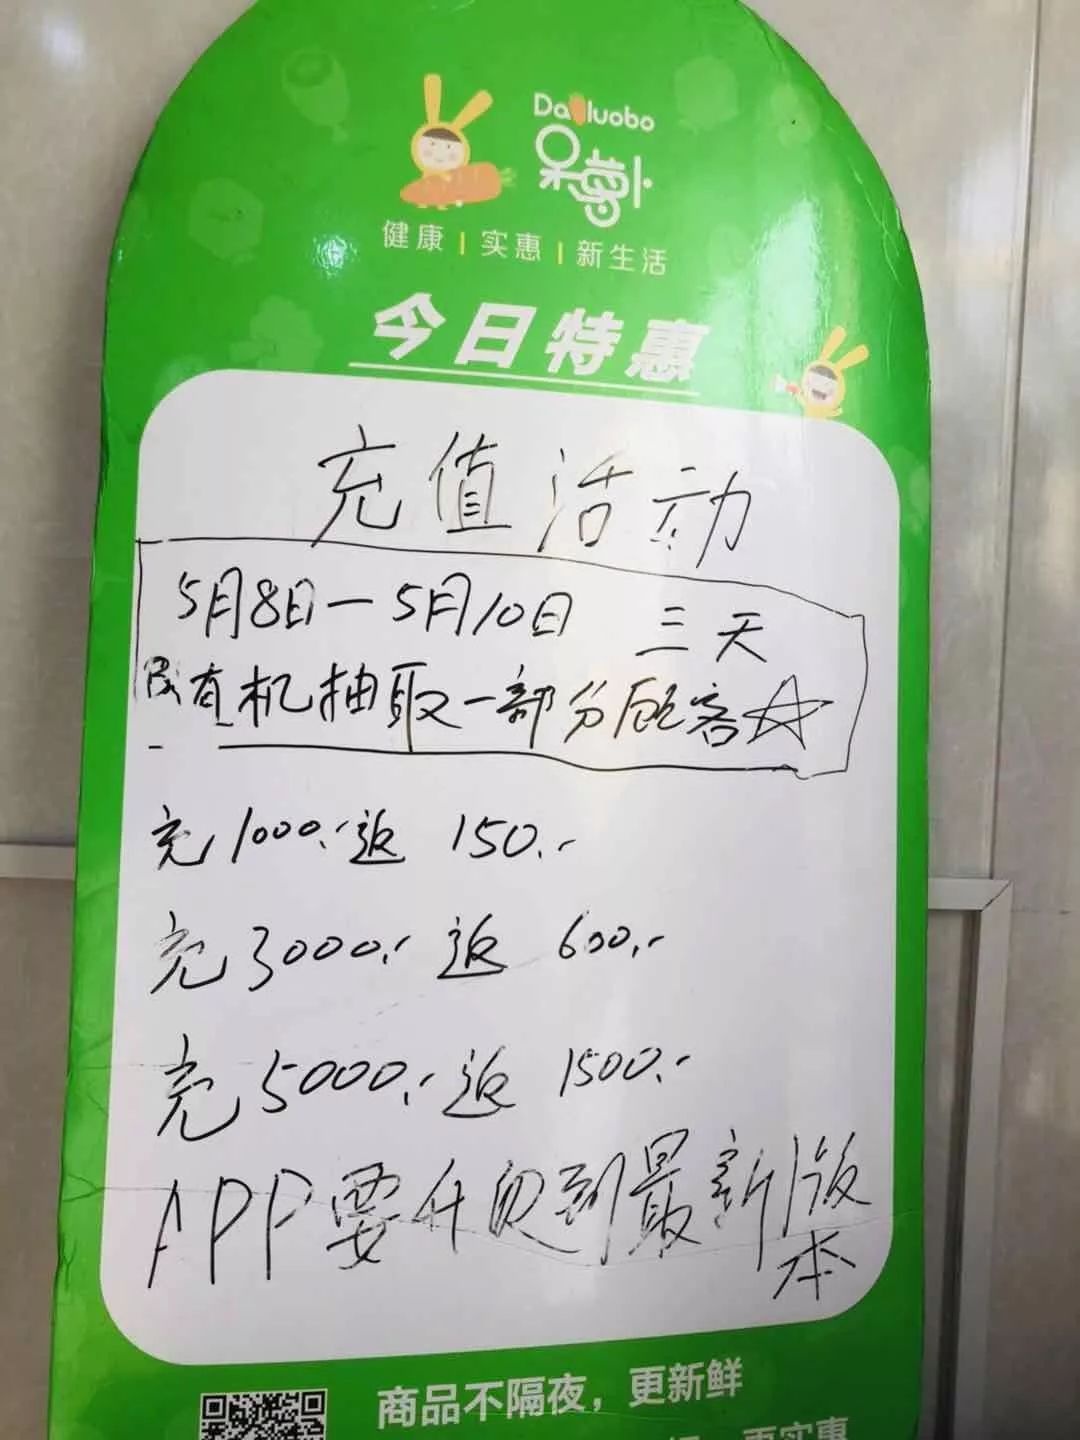 Dailuobo
呆萝卜
健康 | 实惠 | 新生活
今日特惠
充值活动
5月8日—5月10日 三天
随机抽取一部分顾客☆
充1000.-返 150.-
充3000.-返 600.-
充5000.-返 1500.-
APP要升级到最新版
本
商品不隔夜，更新鲜
更实惠